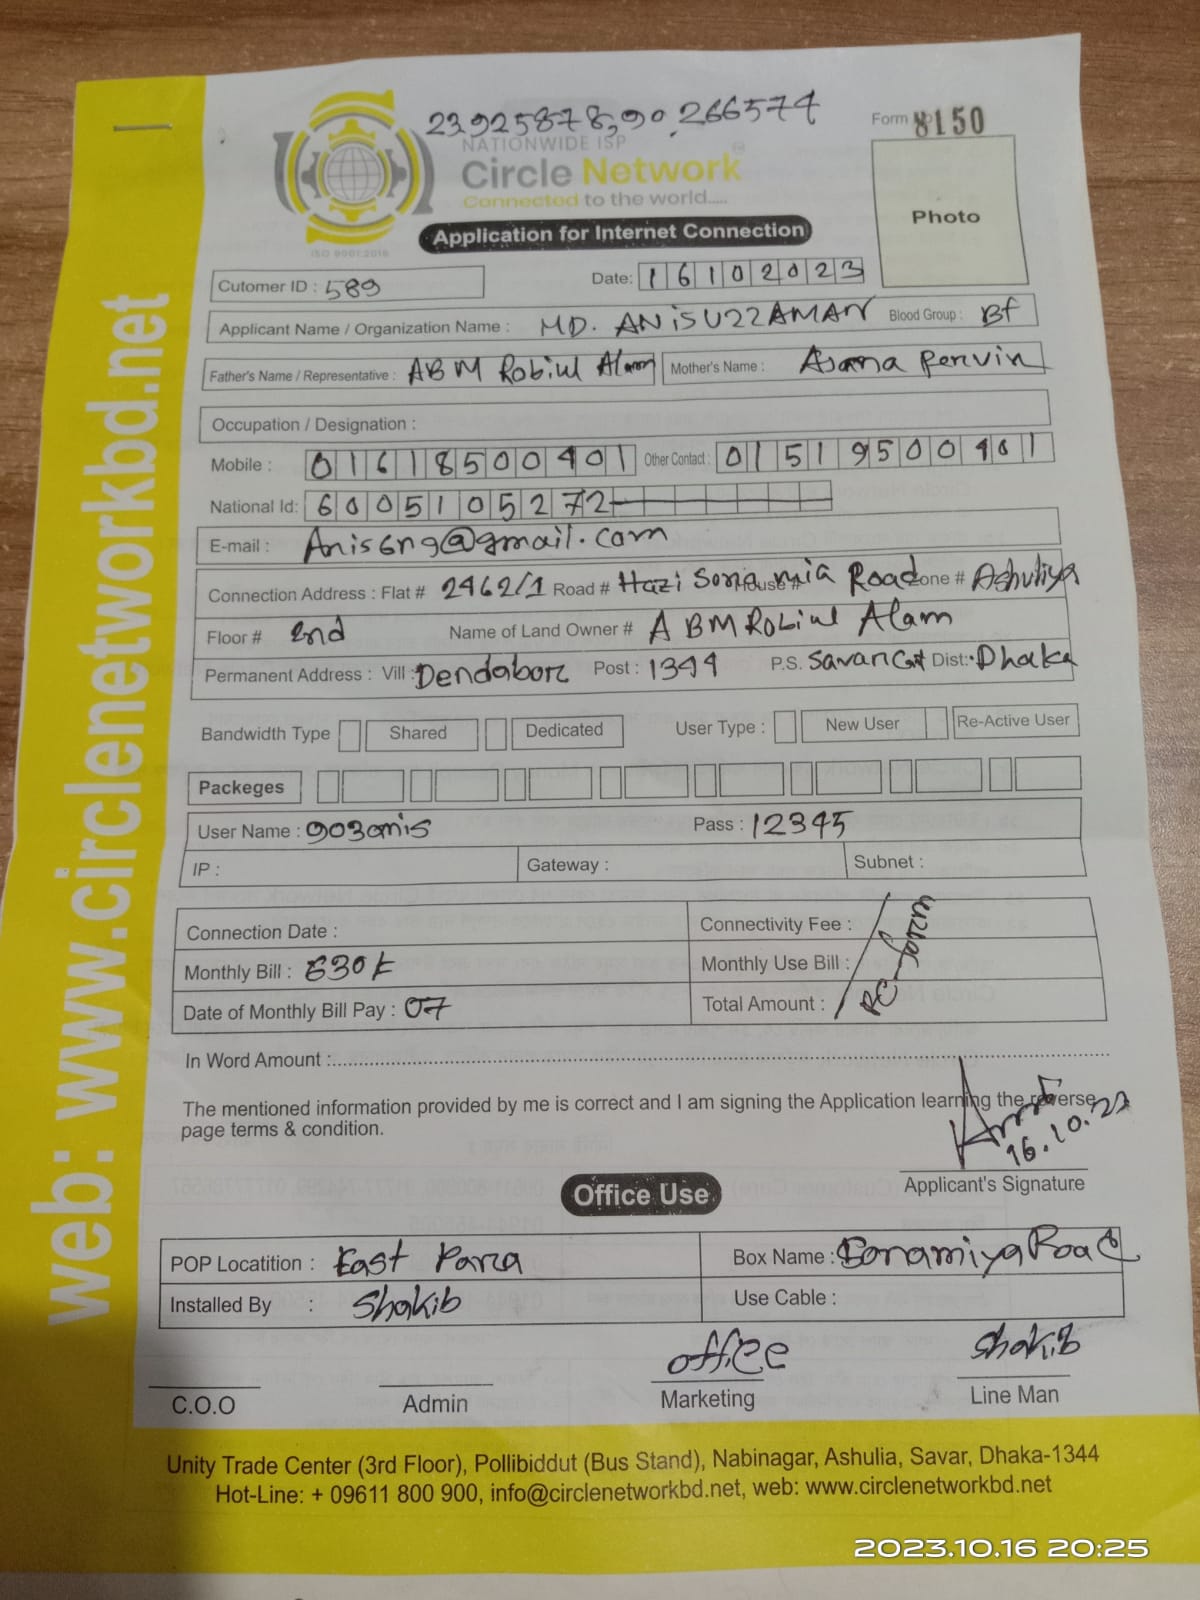 23.925878,90.266574
Form № 8150
NATIONWIDE ISP
Circle Network
Connected to the world.....
ISO 9001:2015
Photo
Application for Internet Connection
Cutomer ID : 589 Date: 16102023
Applicant Name / Organization Name : MD. ANiSUZZAMAN Blood Group : B+
Father's Name / Representative : ABM Robiul Alam Mother's Name : Asama Pervin
Occupation / Designation :
Mobile : 01618500401 Other Contact : 01519500401
National Id: 6005105272
E-mail : Anis6ng@gmail.com
Connection Address : Flat # 2462/1 Road # Hazi Sona mia Road House # Zone # Ashuliya
Floor # 2nd Name of Land Owner # A BM Robiul Alam
Permanent Address : Vill : Dendabor Post : 1344 P.S. Savar Cant Dist: Dhaka
Bandwidth Type Shared Dedicated User Type : New User Re-Active User
Packeges
User Name : 903anis Pass : 12345
IP : Gateway : Subnet :
Connection Date : Connectivity Fee :
Monthly Bill : 630 Monthly Use Bill :
Date of Monthly Bill Pay : 07 Total Amount :
In Word Amount :
The mentioned information provided by me is correct and I am signing the Application learning the reverse
page terms & condition.
16.10.23
Applicant's Signature
Office Use
POP Locatition : East Para Box Name : Sonamiya Road
Installed By : Shakib Use Cable :
office Shakib
C.O.O Admin Marketing Line Man
Unity Trade Center (3rd Floor), Pollibiddut (Bus Stand), Nabinagar, Ashulia, Savar, Dhaka-1344
Hot-Line: + 09611 800 900, info@circlenetworkbd.net, web: www.circlenetworkbd.net
web: www.circlenetworkbd.net
2023.10.16 20:25